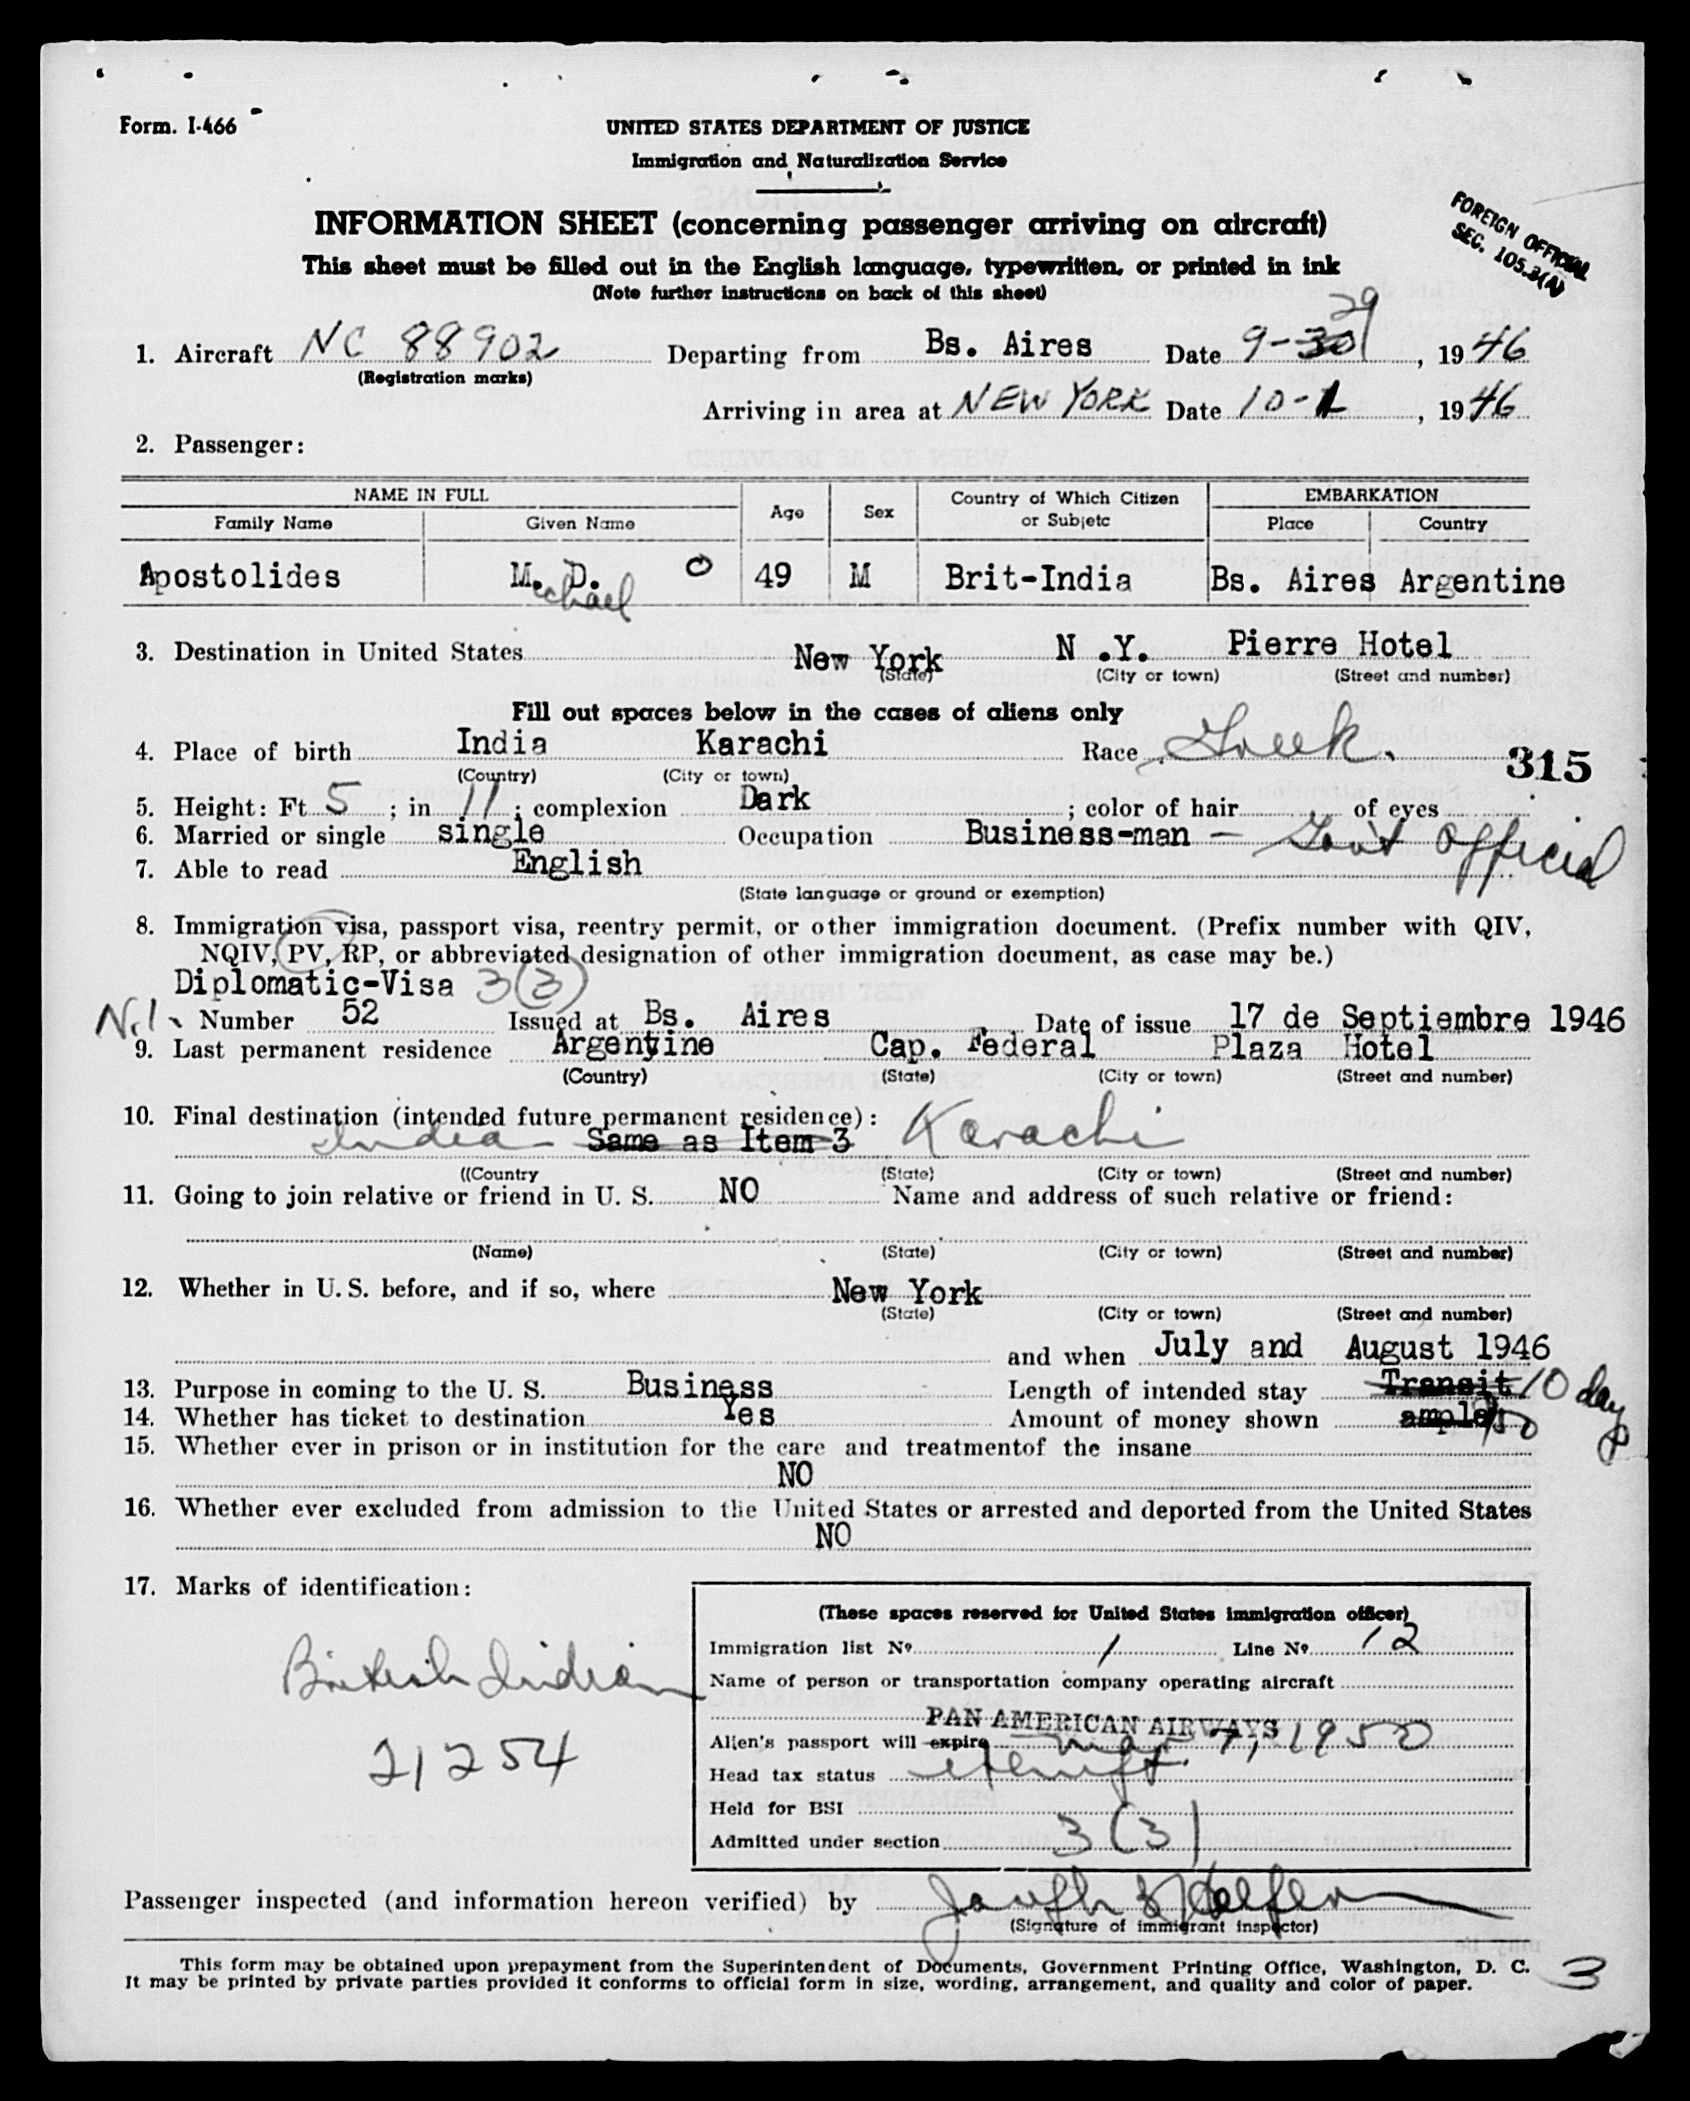 Form. I-466
UNITED STATES DEPARTMENT OF JUSTICE
Immigration and Naturalization Service
INFORMATION SHEET (concerning passenger arriving on aircraft)
FOREIGN OFFICIAL
SEC. 105.3(A)
This sheet must be filled out in the English language, typewritten, or printed in ink
(Note further instructions on back of this sheet)
29
1. Aircraft NC 88902 Departing from Bs. Aires Date 9-30, 1946
(Registration marks)
Arriving in area at NEW YORK Date 10-1, 1946
2. Passenger:
NAME IN FULL Age Sex Country of Which Citizen or Subjetc EMBARKATION
Family Name Given Name Place Country
Apostolides M. D. O 49 M Brit-India Bs. Aires Argentine
Michael
3. Destination in United States New York N .Y. Pierre Hotel
(State) (City or town) (Street and number)
Fill out spaces below in the cases of aliens only
4. Place of birth India Karachi Race Greek. 315
(Country) (City or town)
5. Height: Ft 5; in 11; complexion Dark; color of hair of eyes
6. Married or single single Occupation Business-man - Gov't Official
7. Able to read English
(State language or ground or exemption)
8. Immigration visa, passport visa, reentry permit, or other immigration document. (Prefix number with QIV,
NQIV, PV, RP, or abbreviated designation of other immigration document, as case may be.)
Diplomatic-Visa 3(3)
Number 52 Issued at Bs. Aires Date of issue 17 de Septiembre 1946
9. Last permanent residence Argentine Cap. Federal Plaza Hotel
(Country) (State) (City or town) (Street and number)
10. Final destination (intended future permanent residence):
India - Same as Item 3 Karachi
((Country (State) (City or town) (Street and number)
11. Going to join relative or friend in U. S. NO Name and address of such relative or friend:
(Name) (State) (City or town) (Street and number)
12. Whether in U. S. before, and if so, where New York
(State) (City or town) (Street and number)
and when July and August 1946
13. Purpose in coming to the U. S. Business Length of intended stay Transit 10 days
14. Whether has ticket to destination Yes Amount of money shown ample
15. Whether ever in prison or in institution for the care and treatmentof the insane
NO
16. Whether ever excluded from admission to the United States or arrested and deported from the United States
NO
17. Marks of identification:
(These spaces reserved for United States immigration officer)
Immigration list Nº 1 Line Nº 12
British Indian
Name of person or transportation company operating aircraft
PAN AMERICAN AIRWAYS
21254
Alien's passport will expire Mar 7, 1950
Head tax status exempt
Held for BSI
Admitted under section 3(3)
Passenger inspected (and information hereon verified) by
(Signature of immigrant inspector)
This form may be obtained upon prepayment from the Superintendent of Documents, Government Printing Office, Washington, D. C.
It may be printed by private parties provided it conforms to official form in size, wording, arrangement, and quality and color of paper.
3